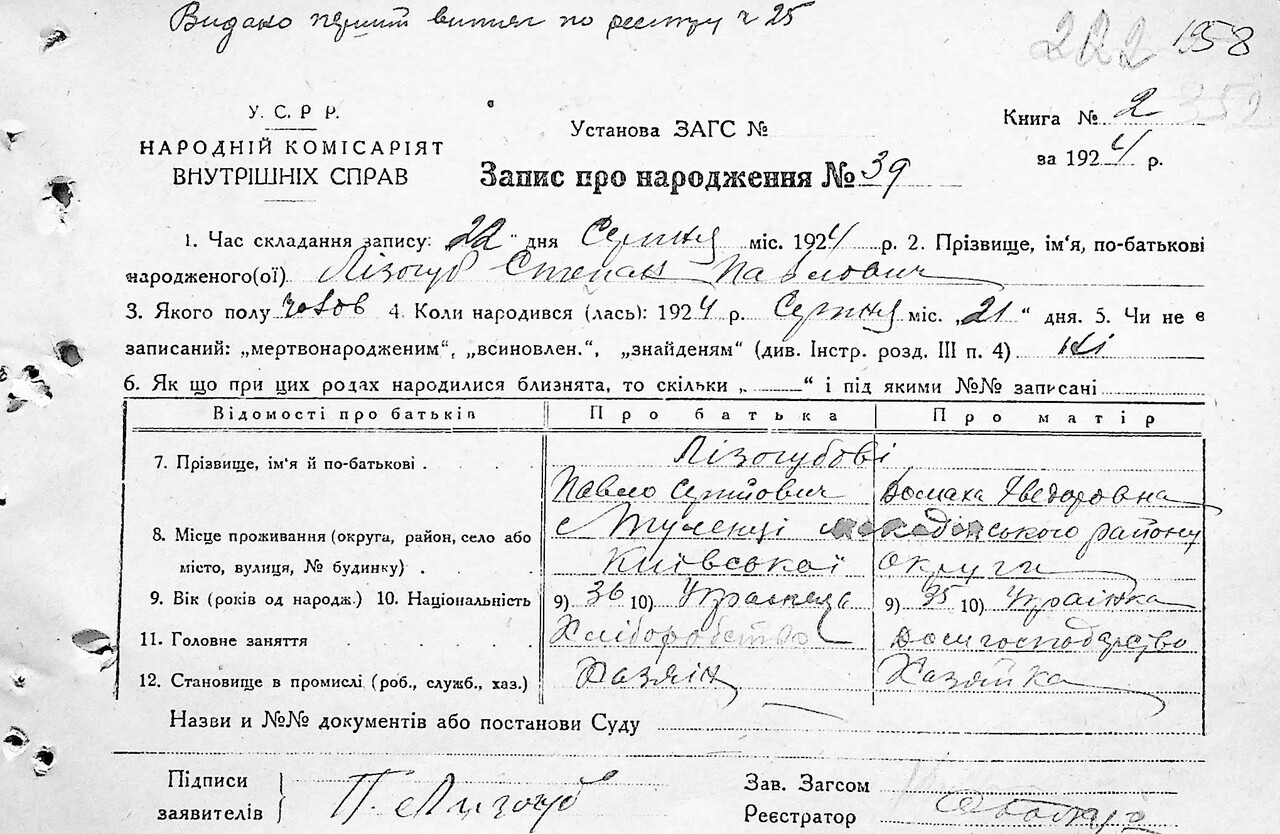 Видано перший витяг по реєстру ч 25
222 1958
352
У. С. Р Р.
НАРОДНІЙ КОМІСАРІЯТ
ВНУТРІШНІХ СПРАВ
Установа ЗАГС №
Запис про народження № 39
Книга № 2
за 1924 р.
1. Час складання запису: „22“ дня Серпня міс. 1924 р. 2. Прізвище, ім'я, по-батькові
народженого(ої) Лізогуб Степан Павлович
3. Якого полу чолов 4. Коли народився (лась): 1924 р. Серпня міс. „21“ дня. 5. Чи не є
записаний: „мертвонародженим“, „всиновлен.“, „знайденям“ (див. Інстр. розд. III п. 4) Ні
6. Як що при цих родах народилися близнята, то скільки „ “ і під якими №№ записані
Відомості про батьків Про батька Про матір
7. Прізвище, ім'я й по-батькові Лізогубові
Павло Сергійович Домаха Федоровна
8. Місце проживання (округа, район, село або с Туленці району
місто, вулиця, № будинку) Київської Округи
9. Вік (років од народж.) 10. Національність 9) 36 10) Украінець 9) 35 10) Украінка
11. Головне заняття Хліборобство Домгосподарство
12. Становище в промислі (роб., служб., хаз.) Хазяін Хазяйка
Назви и №№ документів або постанови Суду
Підписи
заявителів П. Лизогуб
Зав. Загсом
Реєстратор